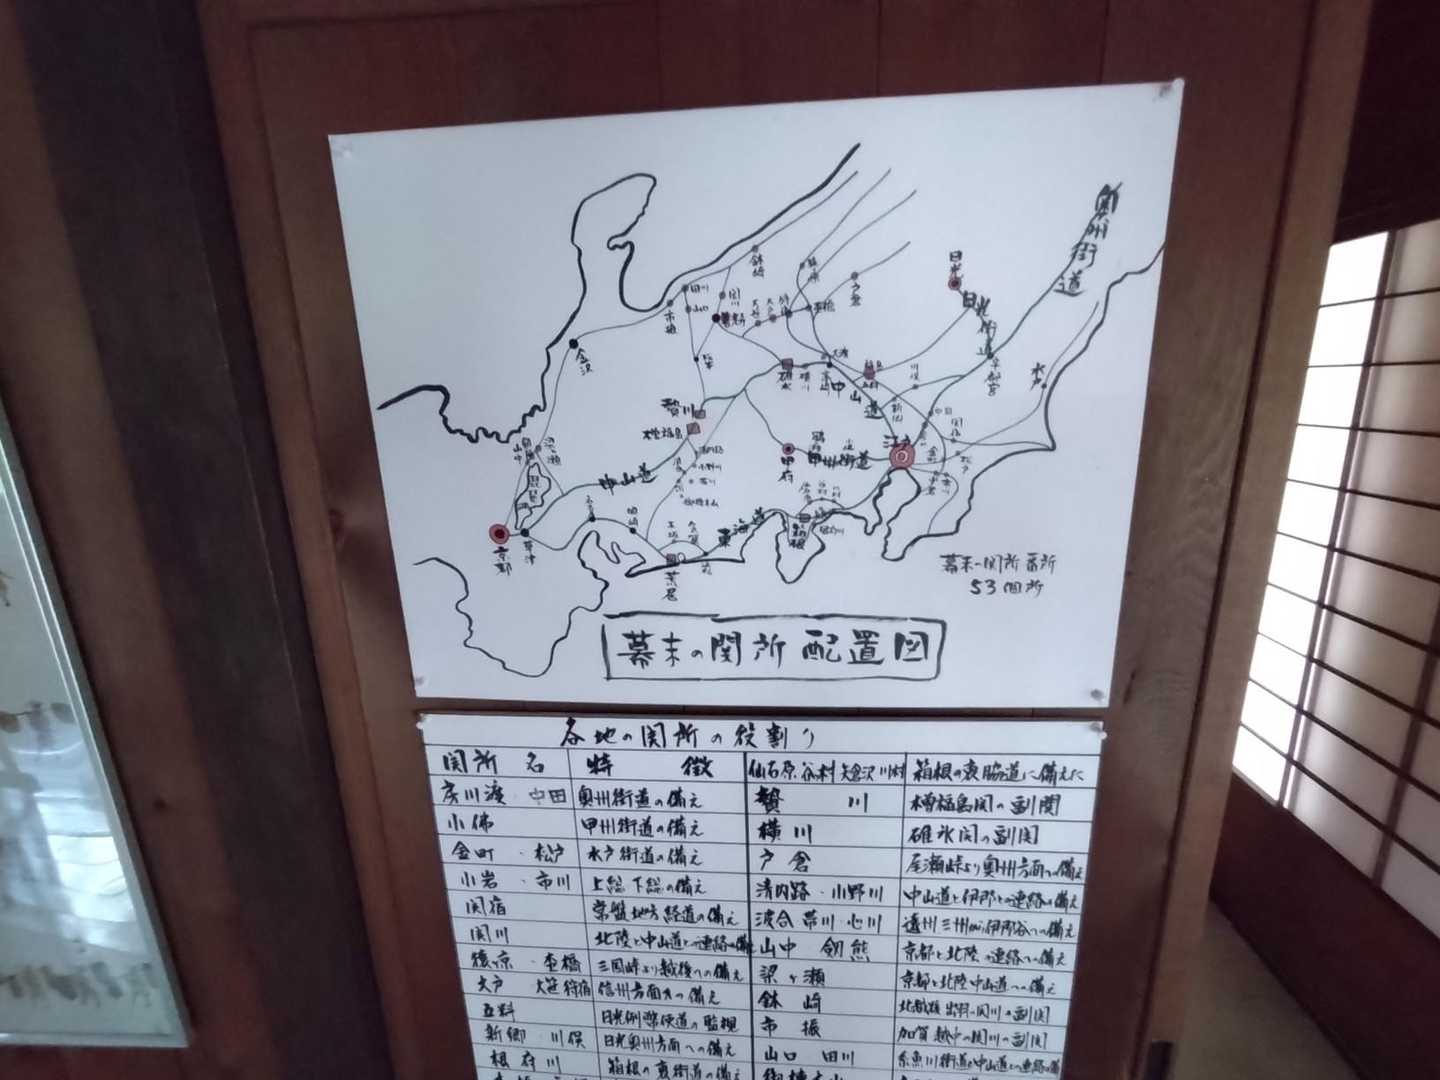 奥州街道
日光
日光街道
宇都宮
水戸
鉢崎
田川
山口
関川
市振
金沢
戸倉
碓水
横川
中山道
新郷
川俣
中田
松戸
贄川
木曽福島
甲府
甲州街道
江戸
金町
琵琶湖
中山道
岡崎
東海道
箱根
京都
草津
荒居
幕末の関所 番所
53個所
幕末の関所配置図
各地の関所の役割り
関所名 特徴 仙石原 谷村 矢倉沢 川村 箱根の裏脇道に備えた
房川渡・中田 奥州街道の備え 贄川 木曽福島関の副関
小佛 甲州街道の備え 横川 碓氷関の副関
金町・松戸 水戸街道の備え 戸倉 尾瀬峠より奥州方面への備え
小岩・市川 上総下総の備え 清内路・小野川 中山道と伊那との連絡の備え
関宿 常盤地方経道の備え 波合 帯川・心川 遠州三州から伊那谷への備え
関川 北陸と中山道との連絡の備え 山中 剱熊 京都と北陸の連絡への備え
猿ヶ京・杢橋 三国峠より越後への備え 梁ヶ瀬 京都と北陸中山道への備え
大戸 大笹 狩宿 信州方面への備え 鉢崎
五料 日光例幣使道の監視 市振 加賀越中の関川の副関
新郷・川俣 日光奥州方面への備え 山口 田川 糸魚川街道と中山道との連絡の備え
根府川 箱根の裏街道の備え